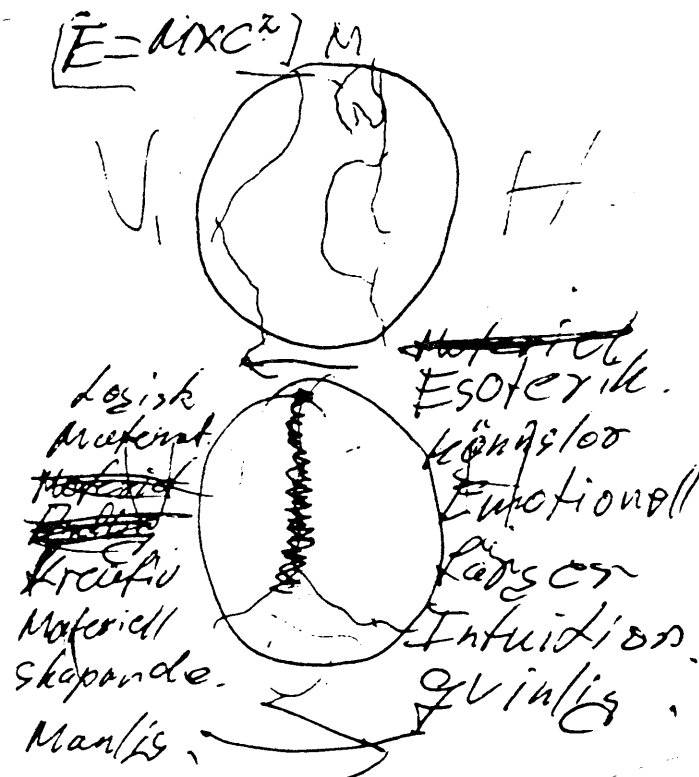 [E=MXC²] M
V. H
Logisk
Matemat.
Kreativ
Materiell
skapande.
Manlig.
Esoterik.
Känslor
Emotionell
Färger
Intuition.
qvinlig.